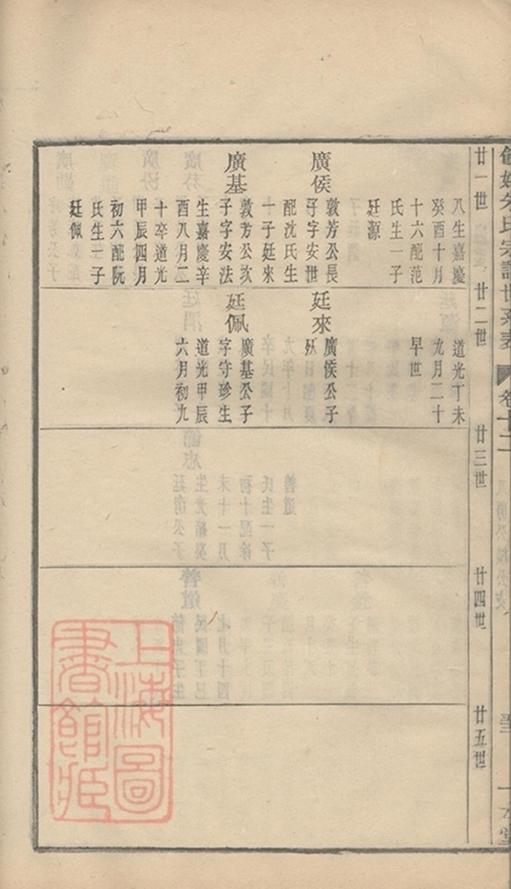 廿一世
廿二世
廿三世
廿四世
廿五世
八生嘉慶
癸酉十月
十六配范
氏生一子
廷源
廣侯
敦芳公長
子字安世
配沈氏生
一子廷來
廣基
敦芳公次
子字安法
生嘉慶辛
酉八月二
十卒道光
甲辰四月
初六配阮
氏生一子
廷佩
道光丁未
九月二十
早世
廷來
廣侯公子
殀
廷佩
廣基公子
字守珍生
道光甲辰
六月初九
上海圖
書館藏